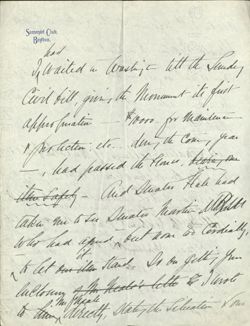 Somerset Club,
Boston.
had
I waited in Washington till the Sunday
Civil bill, giving the Monument its first
appropriation — $1000 for maintenance
& protection etc. during the coming year
—, had passed the House,
item safely — And Senator Hale had
taken me to see Senator
who had but now so cordially,
to let our item stand. So on getting your
enclosing letter I wrote
to directly, stating the situation & our